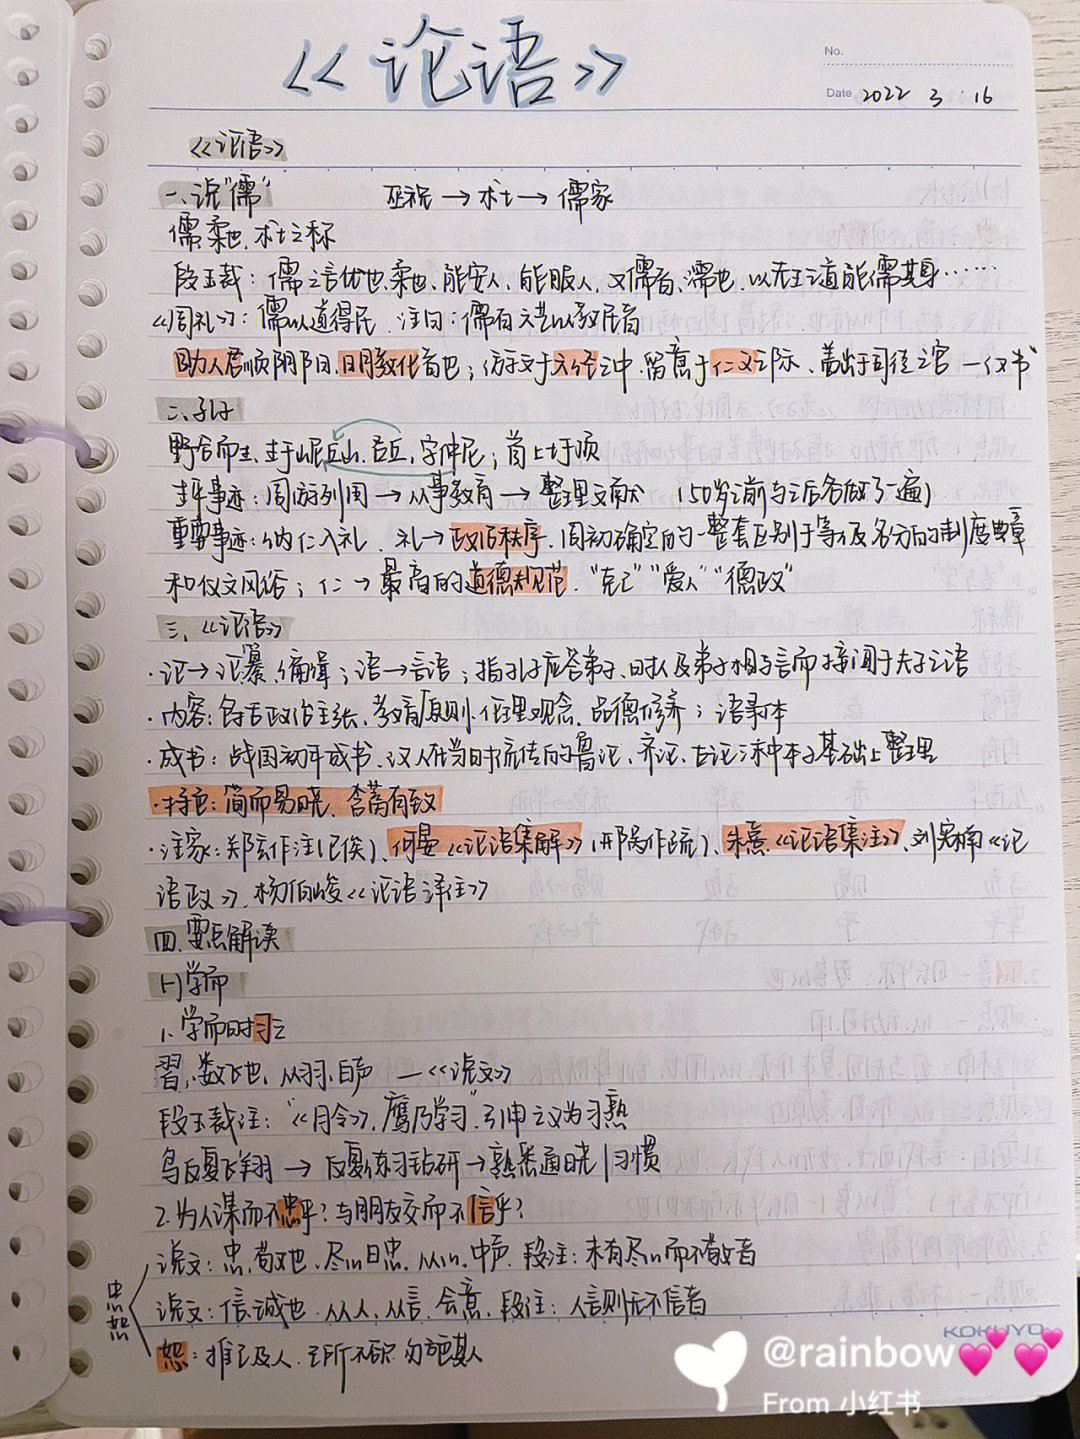 《论语》
No.
Date 2022 3 16
《论语》
一、说"儒" 巫祝→术士→儒家
儒柔也、术士之称
段玉裁：儒之言优也、柔也、能安人、能服人、又儒者、濡也、以先王之道能濡其身……
《周礼》：儒以道得民 注曰：儒有六艺以教民者
助人君顺阴阳、明教化者也；游文于六经之中、留意于仁义之际、盖出于司徒之官 —《汉书》
二、孔子
野合而生、生于尼丘山、名丘、字仲尼；首上圩顶
生平事迹：周游列国→从事教育→整理文献 (50岁之前与之后各做了一遍)
重要事迹：纳仁入礼、礼→政治秩序、周初确定的一整套区别于等级名分的制度典章
和仪文风俗；仁→最高的道德规范、"克己""爱人""德政"
三、《论语》
·论→论纂、编辑；语→言语；指孔子应答弟子、时人及弟子相与言而接闻于夫子之语
·内容：包括政治主张、教育原则、伦理观念、品德修养；语录体
·成书：战国初年成书、汉人在当时流传的鲁论、齐论、古论三种本子基础上整理
·特色：简而易晓、含蓄有致
·注家：郑玄作注(已佚)、何晏《论语集解》(邢昺作疏)、朱熹《论语集注》、刘宝楠《论
语正义》、杨伯峻《论语译注》
四、要点解读
(一)学而
1、学而时习之
習、数飞也、从羽、白声 —《说文》
段玉裁注："《月令》、鹰乃学习"引申之义为习熟
鸟反复飞翔→反复练习钻研→熟悉通晓|习惯
2.为人谋而不忠乎？与朋友交而不信乎？
说文：忠、敬也、尽心曰忠、从心、中声 段注：未有尽心而不敬者
忠恕
说文：信、诚也、从人、从言、会意、段注：人言则无不信者
恕：推己及人、己所不欲 勿施其人
KOKUYO
@rainbow💕💕
From 小红书